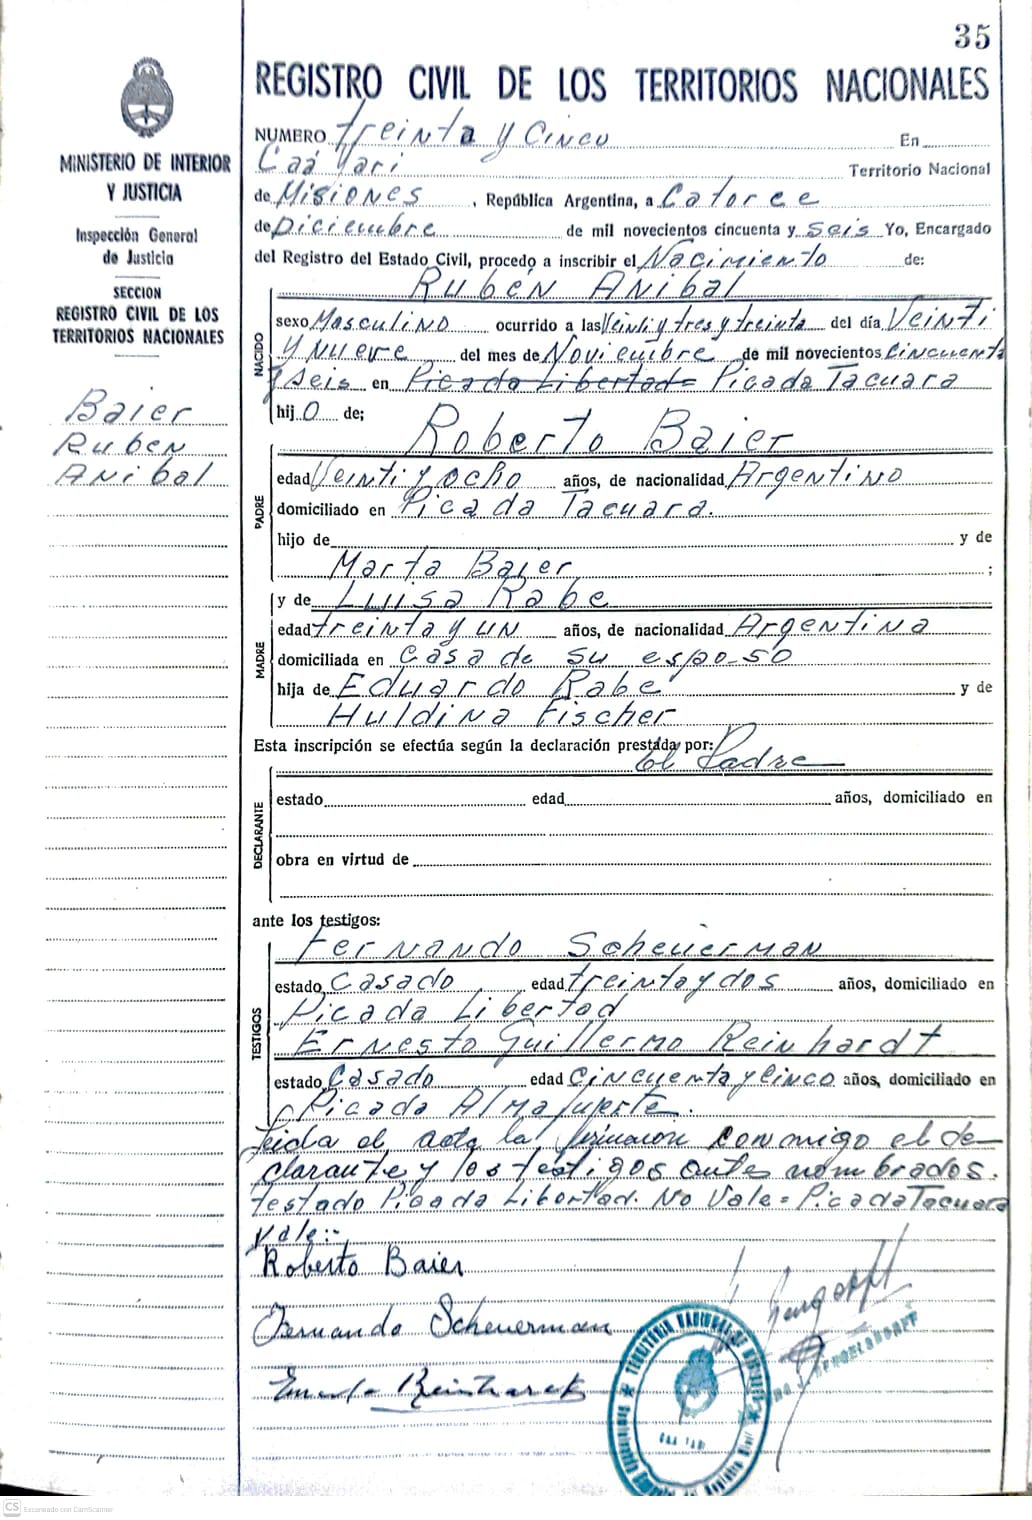 35
MINISTERIO DE INTERIOR
Y JUSTICIA
Inspección General
de Justicia
SECCION
REGISTRO CIVIL DE LOS
TERRITORIOS NACIONALES
Baier
Ruben
Anibal
REGISTRO CIVIL DE LOS TERRITORIOS NACIONALES
NUMERO treinta y cinco En
Caá Yarí Territorio Nacional
de Misiones, República Argentina, a Catorce
de Diciembre de mil novecientos cincuenta y seis Yo, Encargado
del Registro del Estado Civil, procedo a inscribir el Nacimiento de:
Rubén Anibal
NACIDO
sexo Masculino ocurrido a las Veinti y tres y treinta del día Veinti
y nueve del mes de Noviembre de mil novecientos cincuenta
y seis en Picada Libertad= Picada Tacuara
hij o de;
Roberto Baier
PADRE
edad Veinti y ocho años, de nacionalidad Argentino
domiciliado en Picada Tacuara.
hijo de y de
Marta Baier ;
y de Luisa Rabe
MADRE
edad treinta y un años, de nacionalidad Argentina
domiciliada en casa de su esposo
hija de Eduardo Rabe y de
Huldina Fischer
Esta inscripción se efectúa según la declaración prestada por:
el Padre
DECLARANTE
estado edad años, domiciliado en
obra en virtud de
ante los testigos:
TESTIGOS
Fernando Scheuerman
estado Casado edad treinta y dos años, domiciliado en
Picada Libertad
Ernesto Guillermo Reinhardt
estado Casado edad cincuenta y cinco años, domiciliado en
Picada Almafuerte.
leida el acta la firmaron conmigo el de-
clarante y los testigos antes nombrados.
testado Picada Libertad. No Vale = Picada Tacuara
Vale:-
Roberto Baier
Fernando Scheuerman
Reinhardt
TERRITORIO NACIONAL DE MISIONES
CAA YARI
CS Escaneado con CamScanner